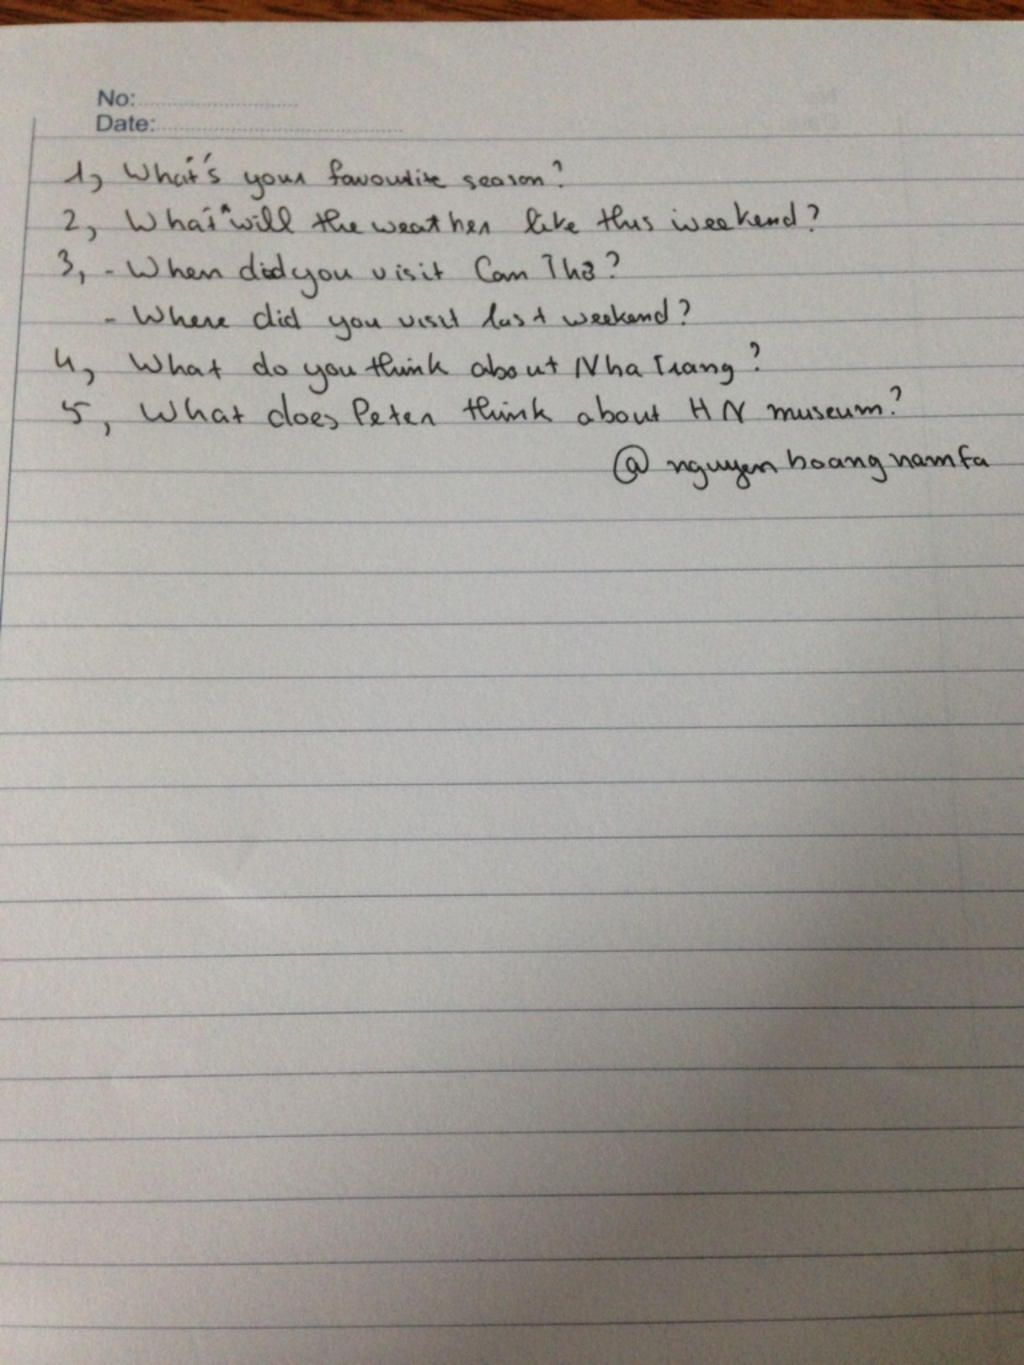 No:
Date:
1, What's your favourite season?
2, What will the weather like this weekend?
3, - When did you visit Can Tho?
- Where did you visit last weekend?
4, What do you think about Nha Trang?
5, What does Peter think about HN museum?
@ nguyen hoang namfa